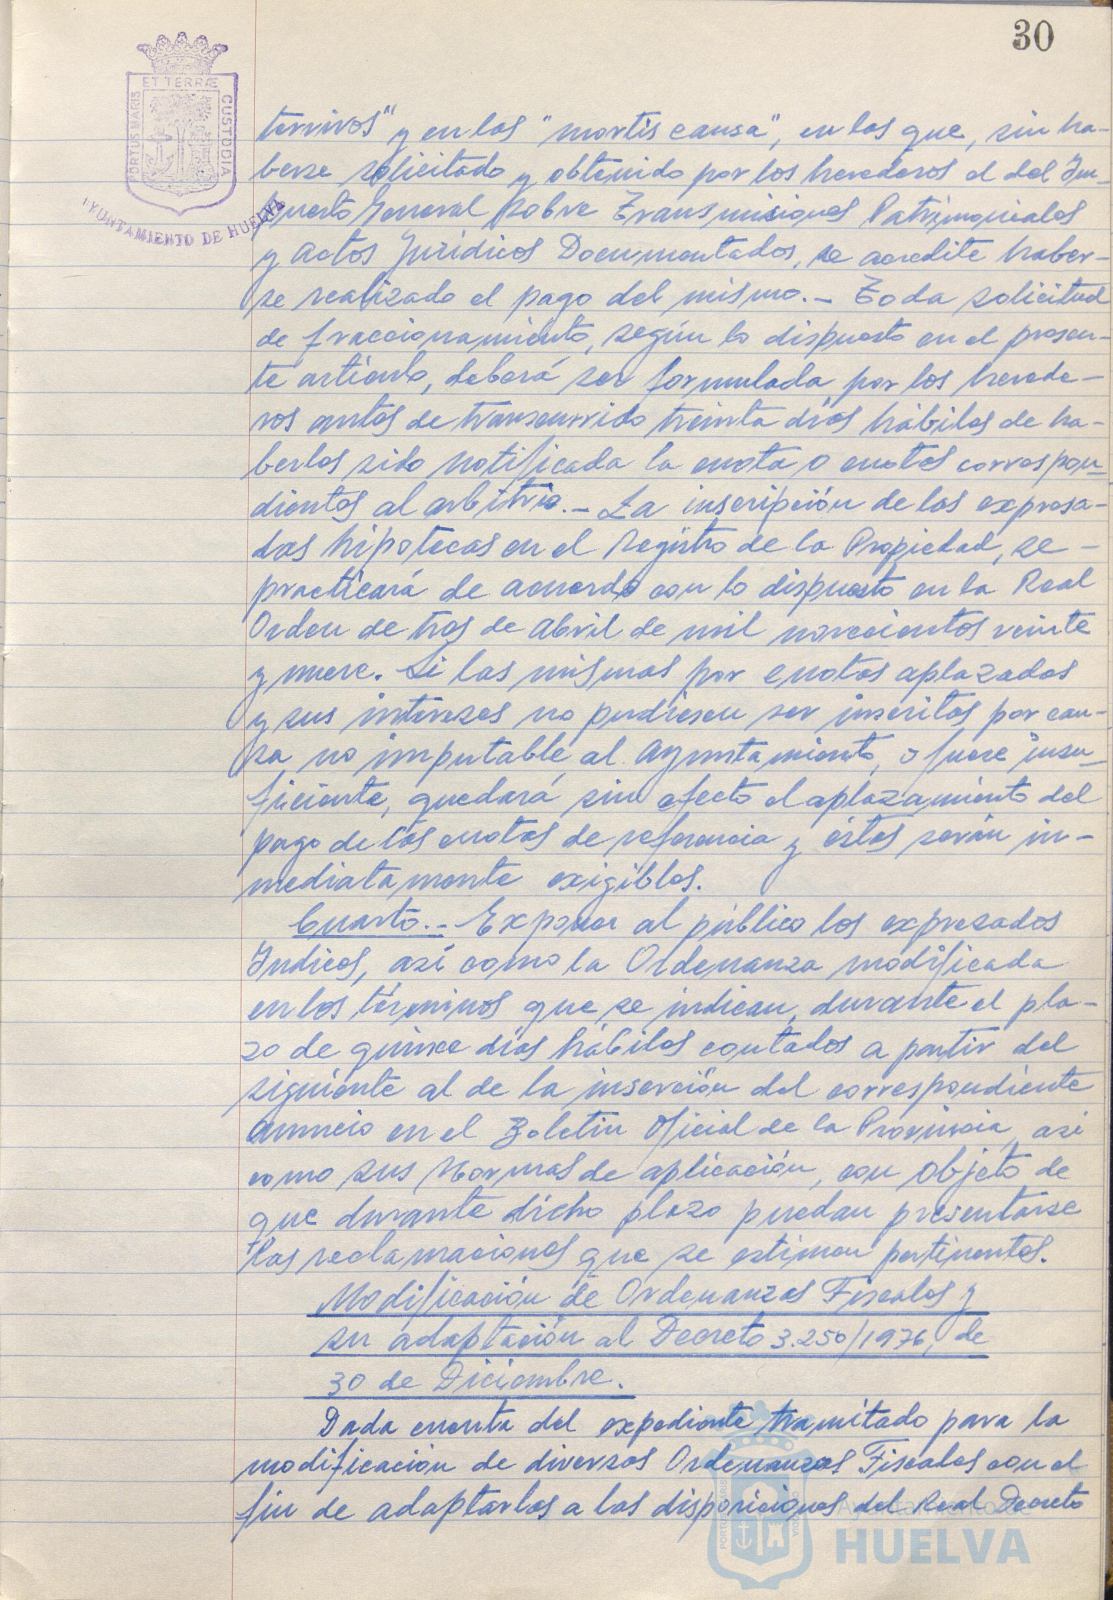 30
PORTUS MARIS ET TERRÆ CUSTODIA
AYUNTAMIENTO DE HUELVA
tervivos" y en las "mortis causa", en las que, sin ha-
berse solicitado y obtenido por los herederos el del Im-
puesto General sobre Transmisiones Patrimoniales
y Actos Jurídicos Documentados, se acredite haber-
se realizado el pago del mismo.- Toda solicitud
de fraccionamiento, según lo dispuesto en el presen-
te artículo, deberá ser formulada por los herede-
ros antes de transcurrido treinta días hábiles de ha-
berles sido notificada la cuota o cuotas correspon-
dientes al arbitrio.- La inscripción de las expresa-
das hipotecas en el Registro de la Propiedad, se-
practicará de acuerdo con lo dispuesto en la Real
Orden de tres de Abril de mil novecientos veinte
y nueve. Si las mismas por cuotas aplazadas
y sus intereses no pudiesen ser inscritas por cau-
sa no imputable al Ayuntamiento, o fuere insu-
ficiente, quedará sin efecto el aplazamiento del
pago de las cuotas de referencia y éstas serán in-
mediatamente exigibles.
Cuarto.- Exponer al público los expresados
Indices, así como la Ordenanza modificada
en los términos que se indican, durante el pla-
zo de quince días hábiles contados a partir del
siguiente al de la inserción del correspondiente
anuncio en el Boletín Oficial de la Provincia, así
como sus Normas de aplicación, con objeto de
que durante dicho plazo puedan presentarse
las reclamaciones que se estimen pertinentes.
Modificación de Ordenanzas Fiscales y
su adaptación al Decreto 3.250/1976, de
30 de Diciembre.
Dada cuenta del expediente tramitado para la
modificación de diversas Ordenanzas Fiscales con el
fin de adaptarlas a las disposiciones del Real Decreto
Ayuntamiento de
HUELVA